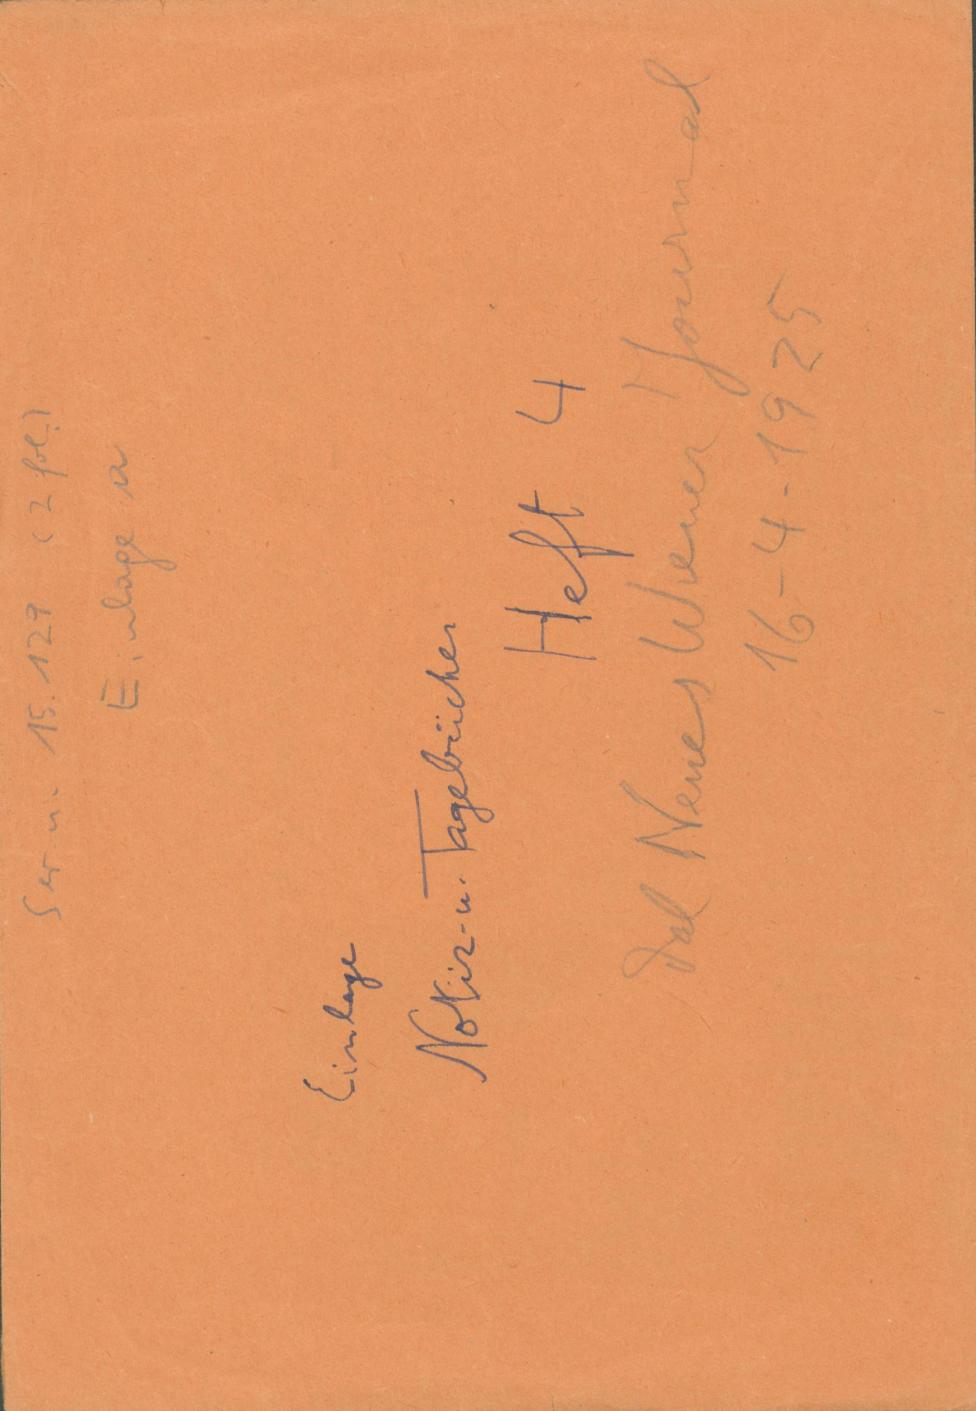 Ser. n. 15.127 (2 fol.)
Einlage a
Einlage
Notiz-u. Tagebücher
Heft 4
Neues Wiener Journal
16-4-1925